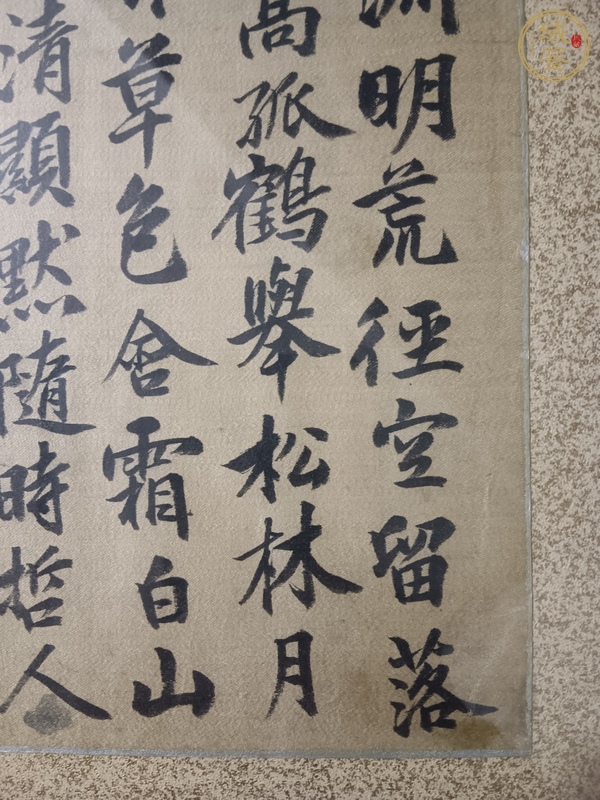 淵明荒径空留落
高孤鶴舉松林月
草色含霜白山
清顯默隨時哲人